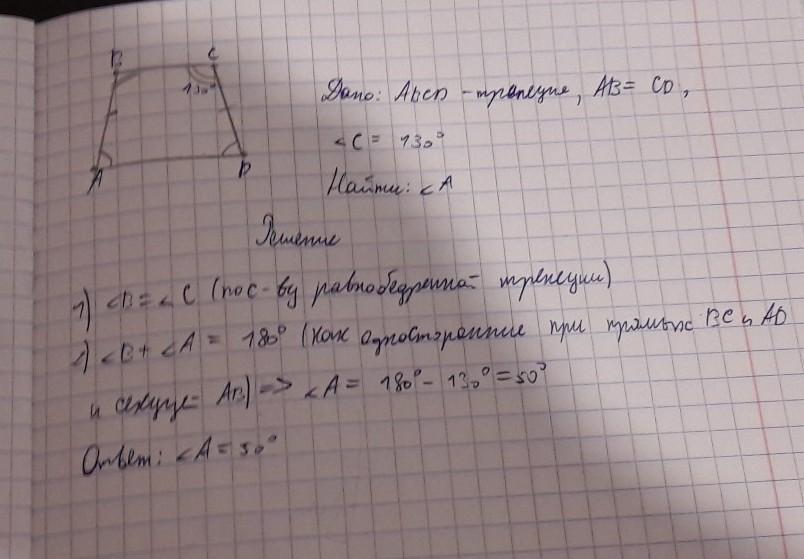 B C
130°
A D
Дано: ABCD - трапеция, AB = CD,
∠C = 130°
Найти: ∠A
Решение
1) ∠B = ∠C (по с-ву равнобедренной трапеции)
2) ∠B + ∠A = 180° (как односторонние при прямых BC и AD
и секущей AB) => ∠A = 180° - 130° = 50°
Ответ: ∠A = 50°